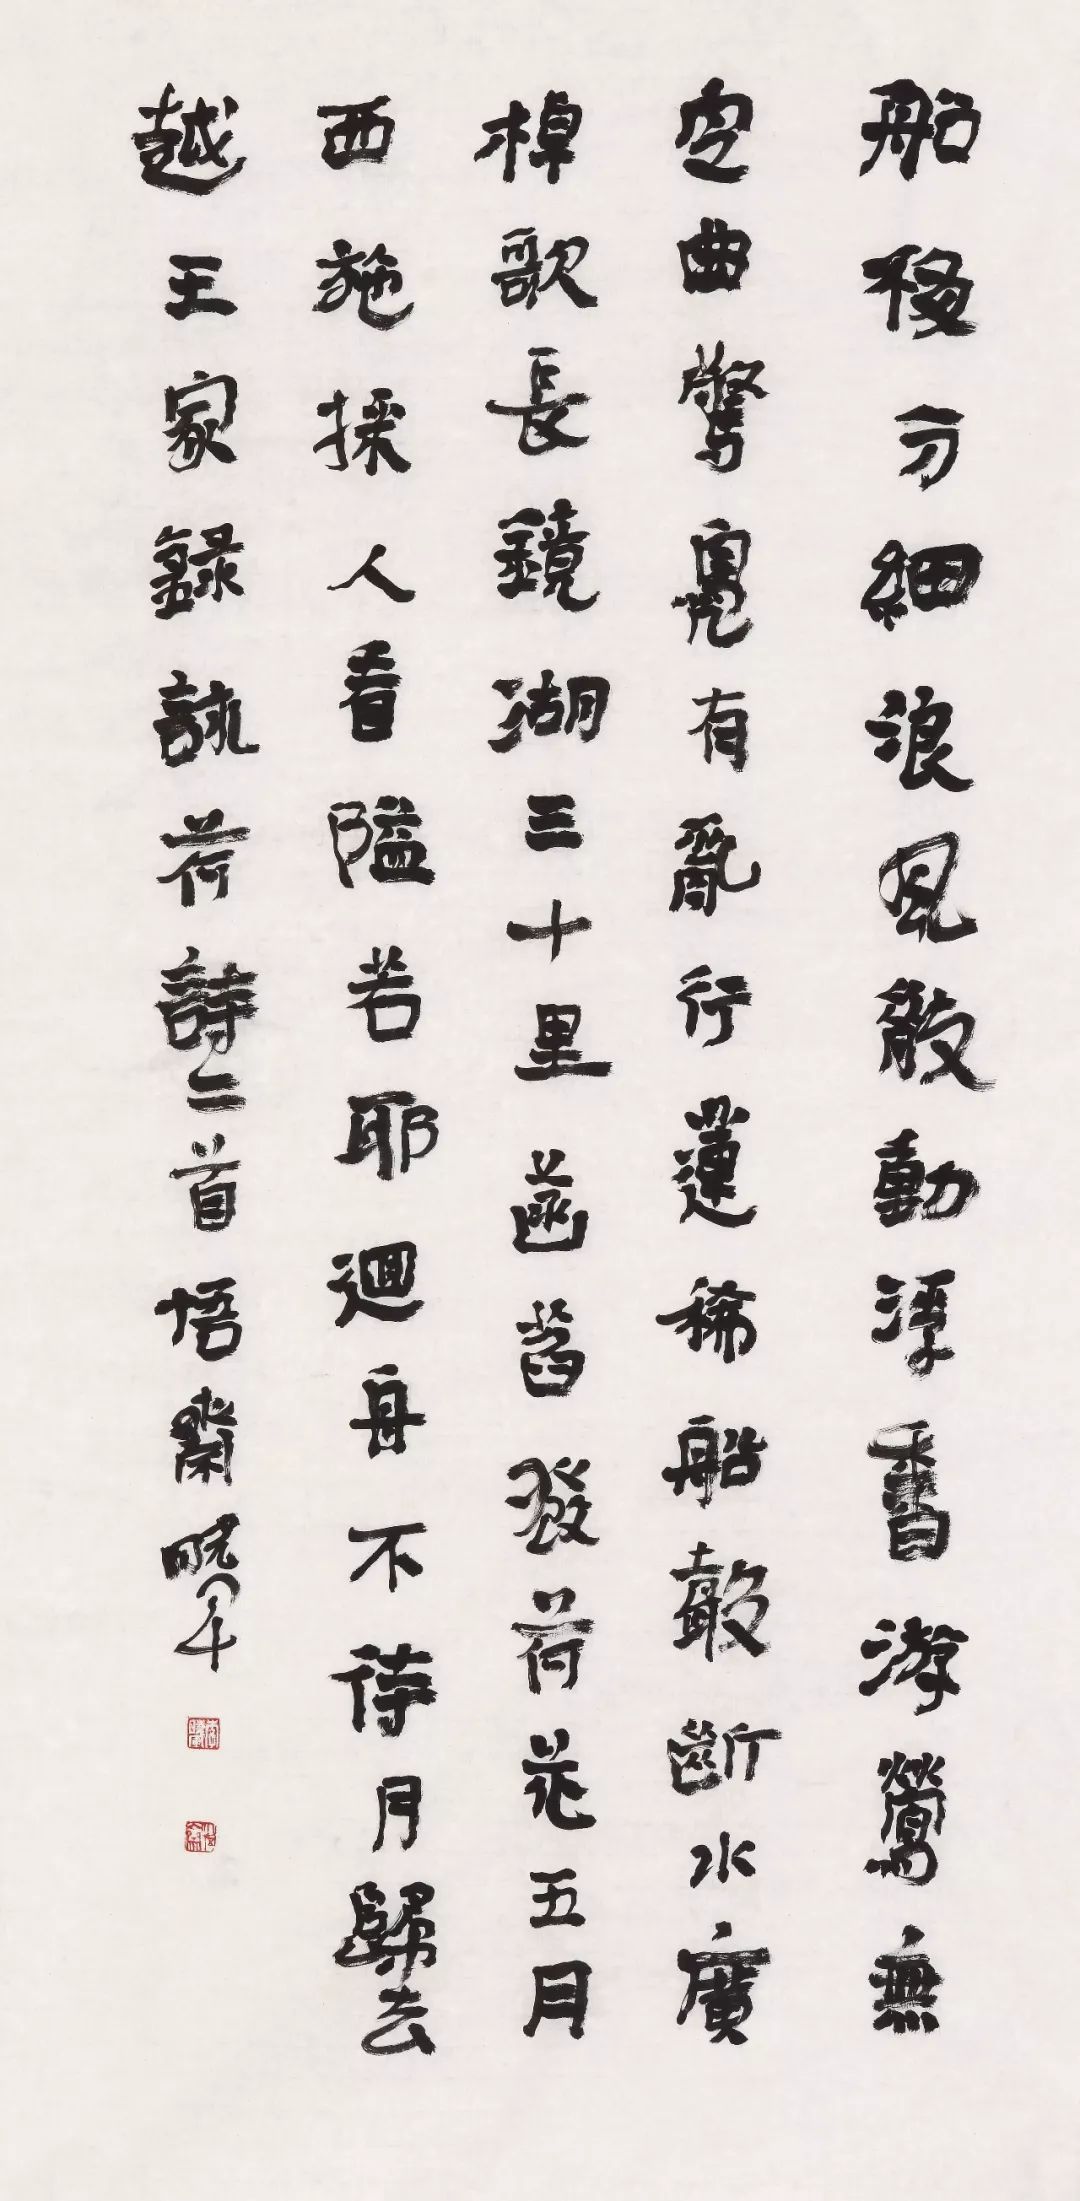 船移分細浪風散動浮香游鶯無
定曲驚鳧有亂行蓮稀船聲斷水廣
棹歌長鏡湖三十里菡萏發荷花五月
西施採人看隘若耶迴舟不待月歸去
越王家錄詠荷詩二首悟齋曉軍